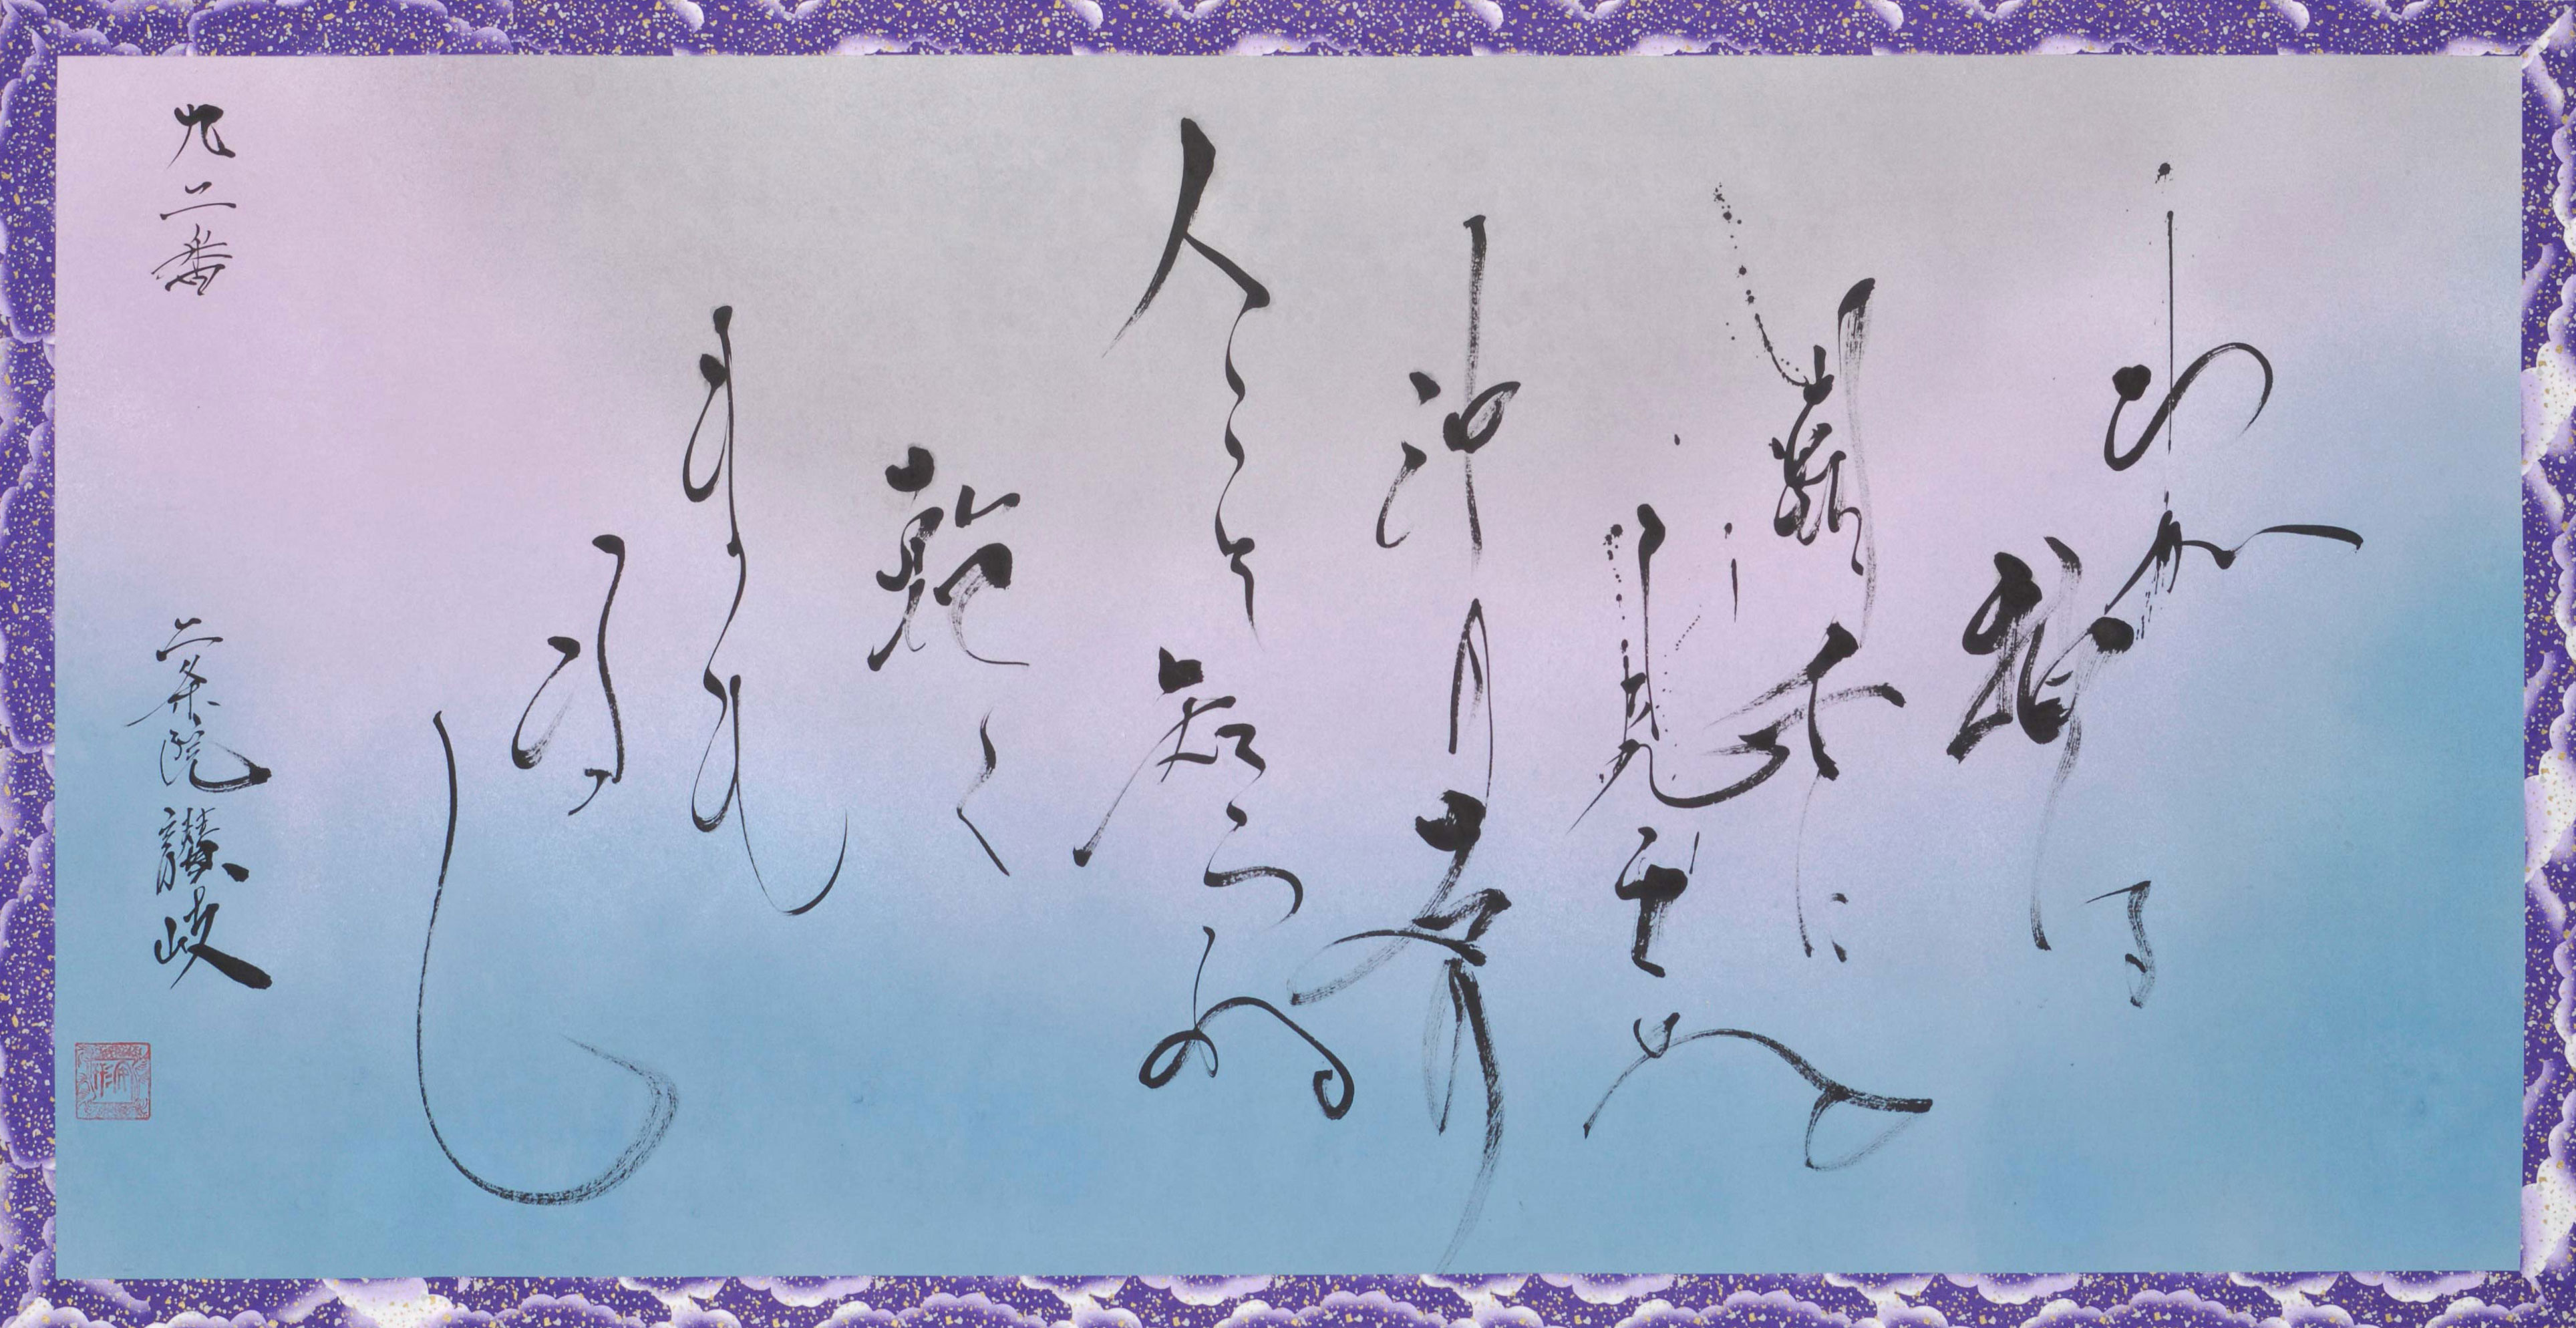 わ加
袖は
潮干に
見えぬ
沖乃石乃
人こそ知らね
乾く
まも
な
し
九二番
二条院讃岐